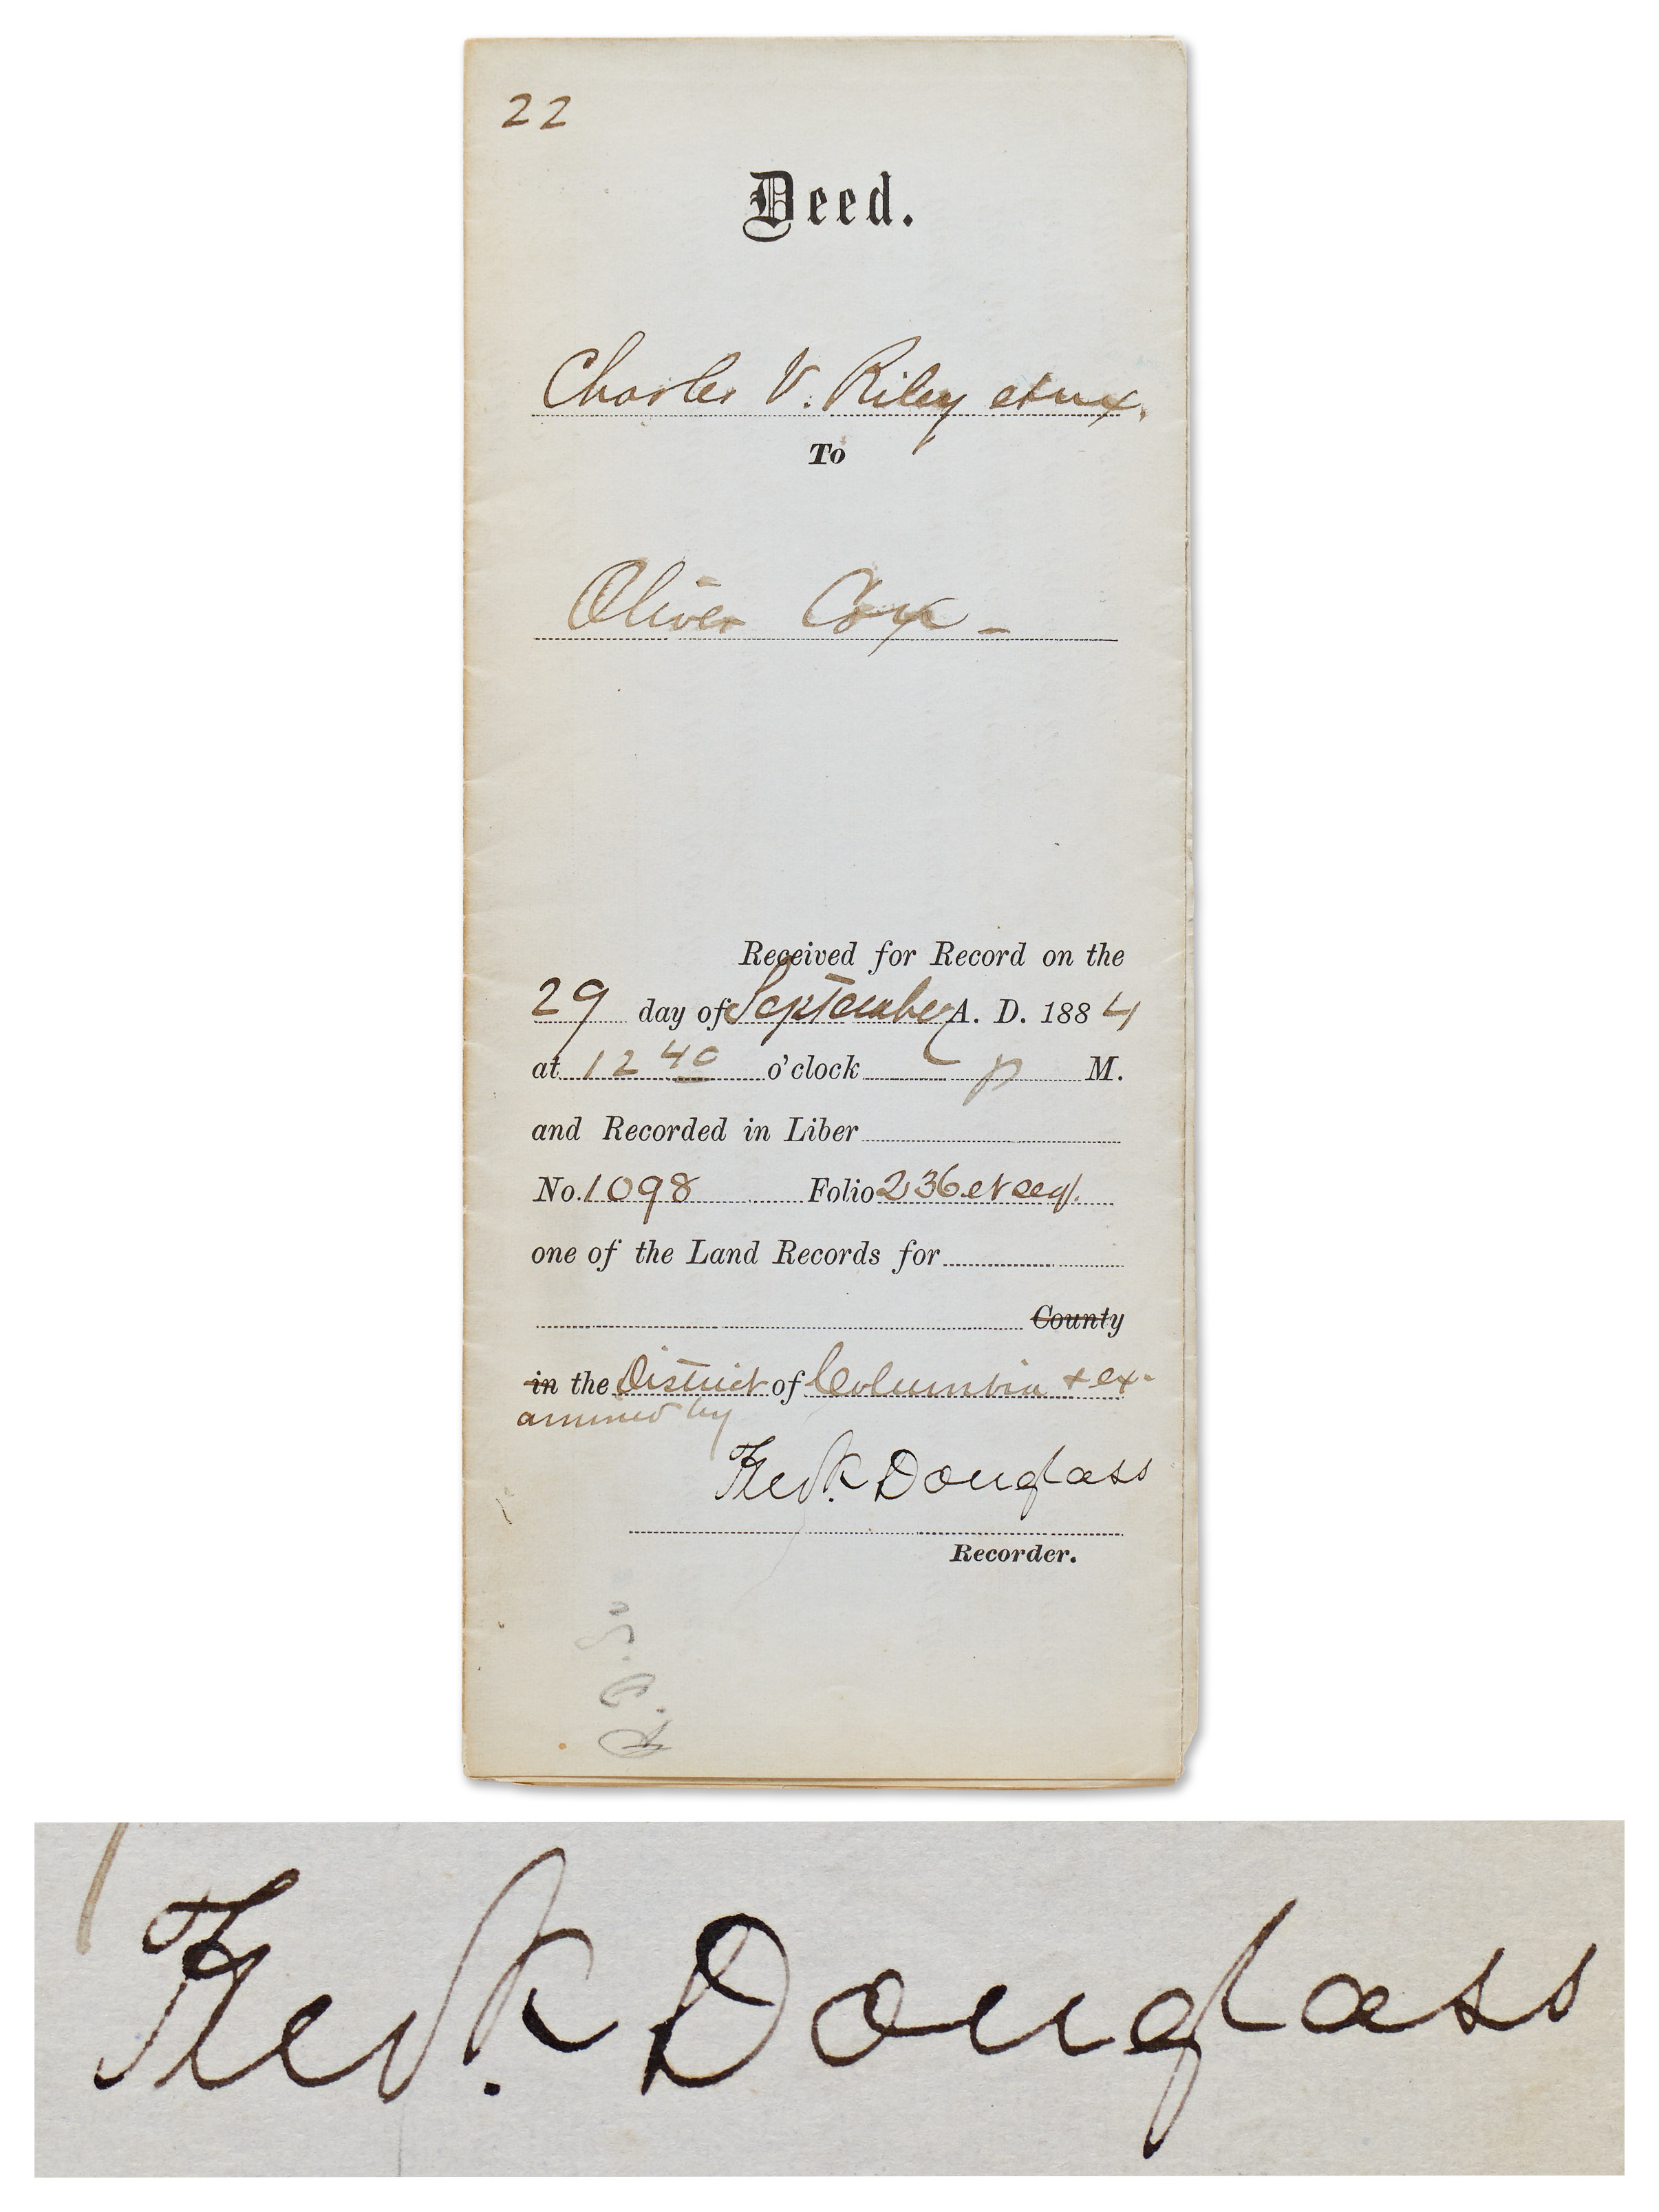 22
Deed.
Charles V. Riley et ux.
To
Oliver Cox -
Received for Record on the
29 day of September A. D. 1884
at 12 40 o'clock p M.
and Recorded in Liber
No. 1098 Folio 236 et seq.
one of the Land Records for
County
in the District of Columbia + ex-
amined by
Fredk. Douglass
Recorder.
Fredk. Douglass